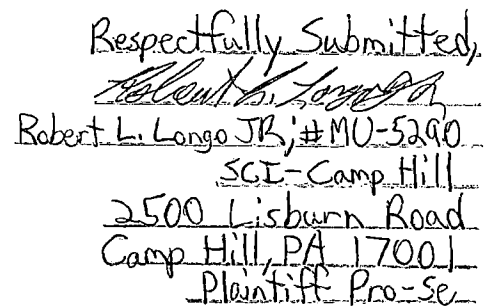 Respectfully Submitted,
Robert L. Longo JR
Robert L. Longo JR; #MU-5290
SCI-Camp Hill
2500 Lisburn Road
Camp Hill, PA 17001
Plaintiff Pro-se